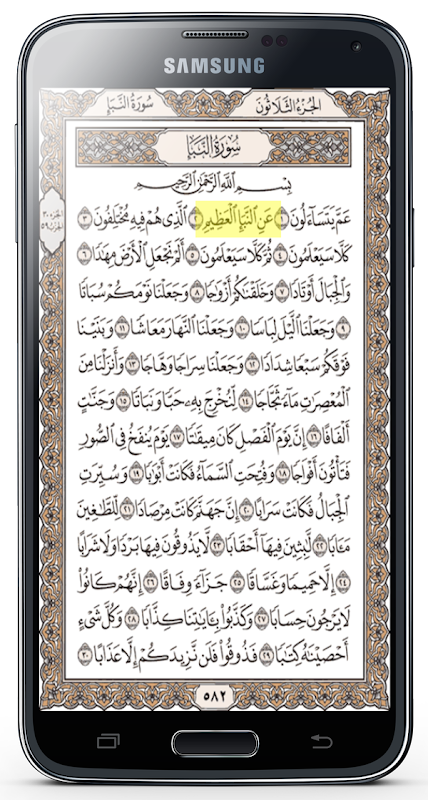 SAMSUNG
الجُزْءُ الثَّلَاثُونَ
سُورَةُ النَّبَإِ
سُورَةُ النَّبَإِ
بِسْمِ ٱللَّهِ ٱلرَّحْمَٰنِ ٱلرَّحِيمِ
عَمَّ يَتَسَآءَلُونَ ١ عَنِ ٱلنَّبَإِ ٱلْعَظِيمِ ٢ ٱلَّذِى هُمْ فِيهِ مُخْتَلِفُونَ ٣
كَلَّا سَيَعْلَمُونَ ٤ ثُمَّ كَلَّا سَيَعْلَمُونَ ٥ أَلَمْ نَجْعَلِ ٱلْأَرْضَ مِهَٰدًا ٦
وَٱلْجِبَالَ أَوْتَادًا ٧ وَخَلَقْنَٰكُمْ أَزْوَٰجًا ٨ وَجَعَلْنَا نَوْمَكُمْ سُبَاتًا
٩ وَجَعَلْنَا ٱلَّيْلَ لِبَاسًا ١٠ وَجَعَلْنَا ٱلنَّهَارَ مَعَاشًا ١١ وَبَنَيْنَا
فَوْقَكُمْ سَبْعًا شِدَادًا ١٢ وَجَعَلْنَا سِرَاجًا وَهَّاجًا ١٣ وَأَنزَلْنَا مِنَ
ٱلْمُعْصِرَٰتِ مَآءً ثَجَّاجًا ١٤ لِّنُخْرِجَ بِهِۦ حَبًّا وَنَبَاتًا ١٥ وَجَنَّٰتٍ
أَلْفَافًا ١٦ إِنَّ يَوْمَ ٱلْفَصْلِ كَانَ مِيقَٰتًا ١٧ يَوْمَ يُنفَخُ فِى ٱلصُّورِ
فَتَأْتُونَ أَفْوَاجًا ١٨ وَفُتِحَتِ ٱلسَّمَآءُ فَكَانَتْ أَبْوَٰبًا ١٩ وَسُيِّرَتِ
ٱلْجِبَالُ فَكَانَتْ سَرَابًا ٢٠ إِنَّ جَهَنَّمَ كَانَتْ مِرْصَادًا ٢١ لِّلطَّٰغِينَ
مَـَٔابًا ٢٢ لَّٰبِثِينَ فِيهَآ أَحْقَابًا ٢٣ لَّا يَذُوقُونَ فِيهَا بَرْدًا وَلَا شَرَابًا
٢٤ إِلَّا حَمِيمًا وَغَسَّاقًا ٢٥ جَزَآءً وِفَاقًا ٢٦ إِنَّهُمْ كَانُوا۟
لَا يَرْجُونَ حِسَابًا ٢٧ وَكَذَّبُوا۟ بِـَٔايَٰتِنَا كِذَّابًا ٢٨ وَكُلَّ شَىْءٍ
أَحْصَيْنَٰهُ كِتَٰبًا ٢٩ فَذُوقُوا۟ فَلَن نَّزِيدَكُمْ إِلَّا عَذَابًا ٣٠
٥٨٢